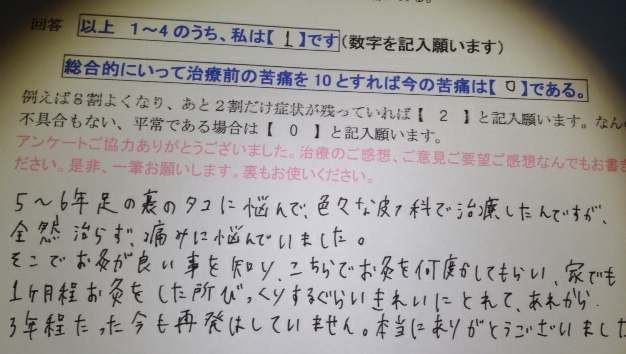 回答 以上 1～4のうち、私は【 1 】です(数字を記入願います)
総合的にいって治療前の苦痛を10とすれば今の苦痛は【 0 】である。
例えば8割よくなり、あと2割だけ症状が残っていれば【 2 】と記入願います。なん
不具合もない、平常である場合は【 0 】と記入願います。
アンケートご協力ありがとうございました。治療のご感想、ご意見ご要望ご感想なんでもお書き
ださい。是非、一筆お願いします。裏もお使いください。
5～6年足の裏のタコに悩んで、色々な皮フ科で治療したんですが、
全然治らず、痛みに悩んでいました。
そこでお灸が良い事を知り、こちらでお灸を何度かしてもらい、家でも
1ヶ月程お灸をした所びっくりするぐらいきれいにとれて、あれから
3年程たった今も再発はしていません。本当にありがとうございました